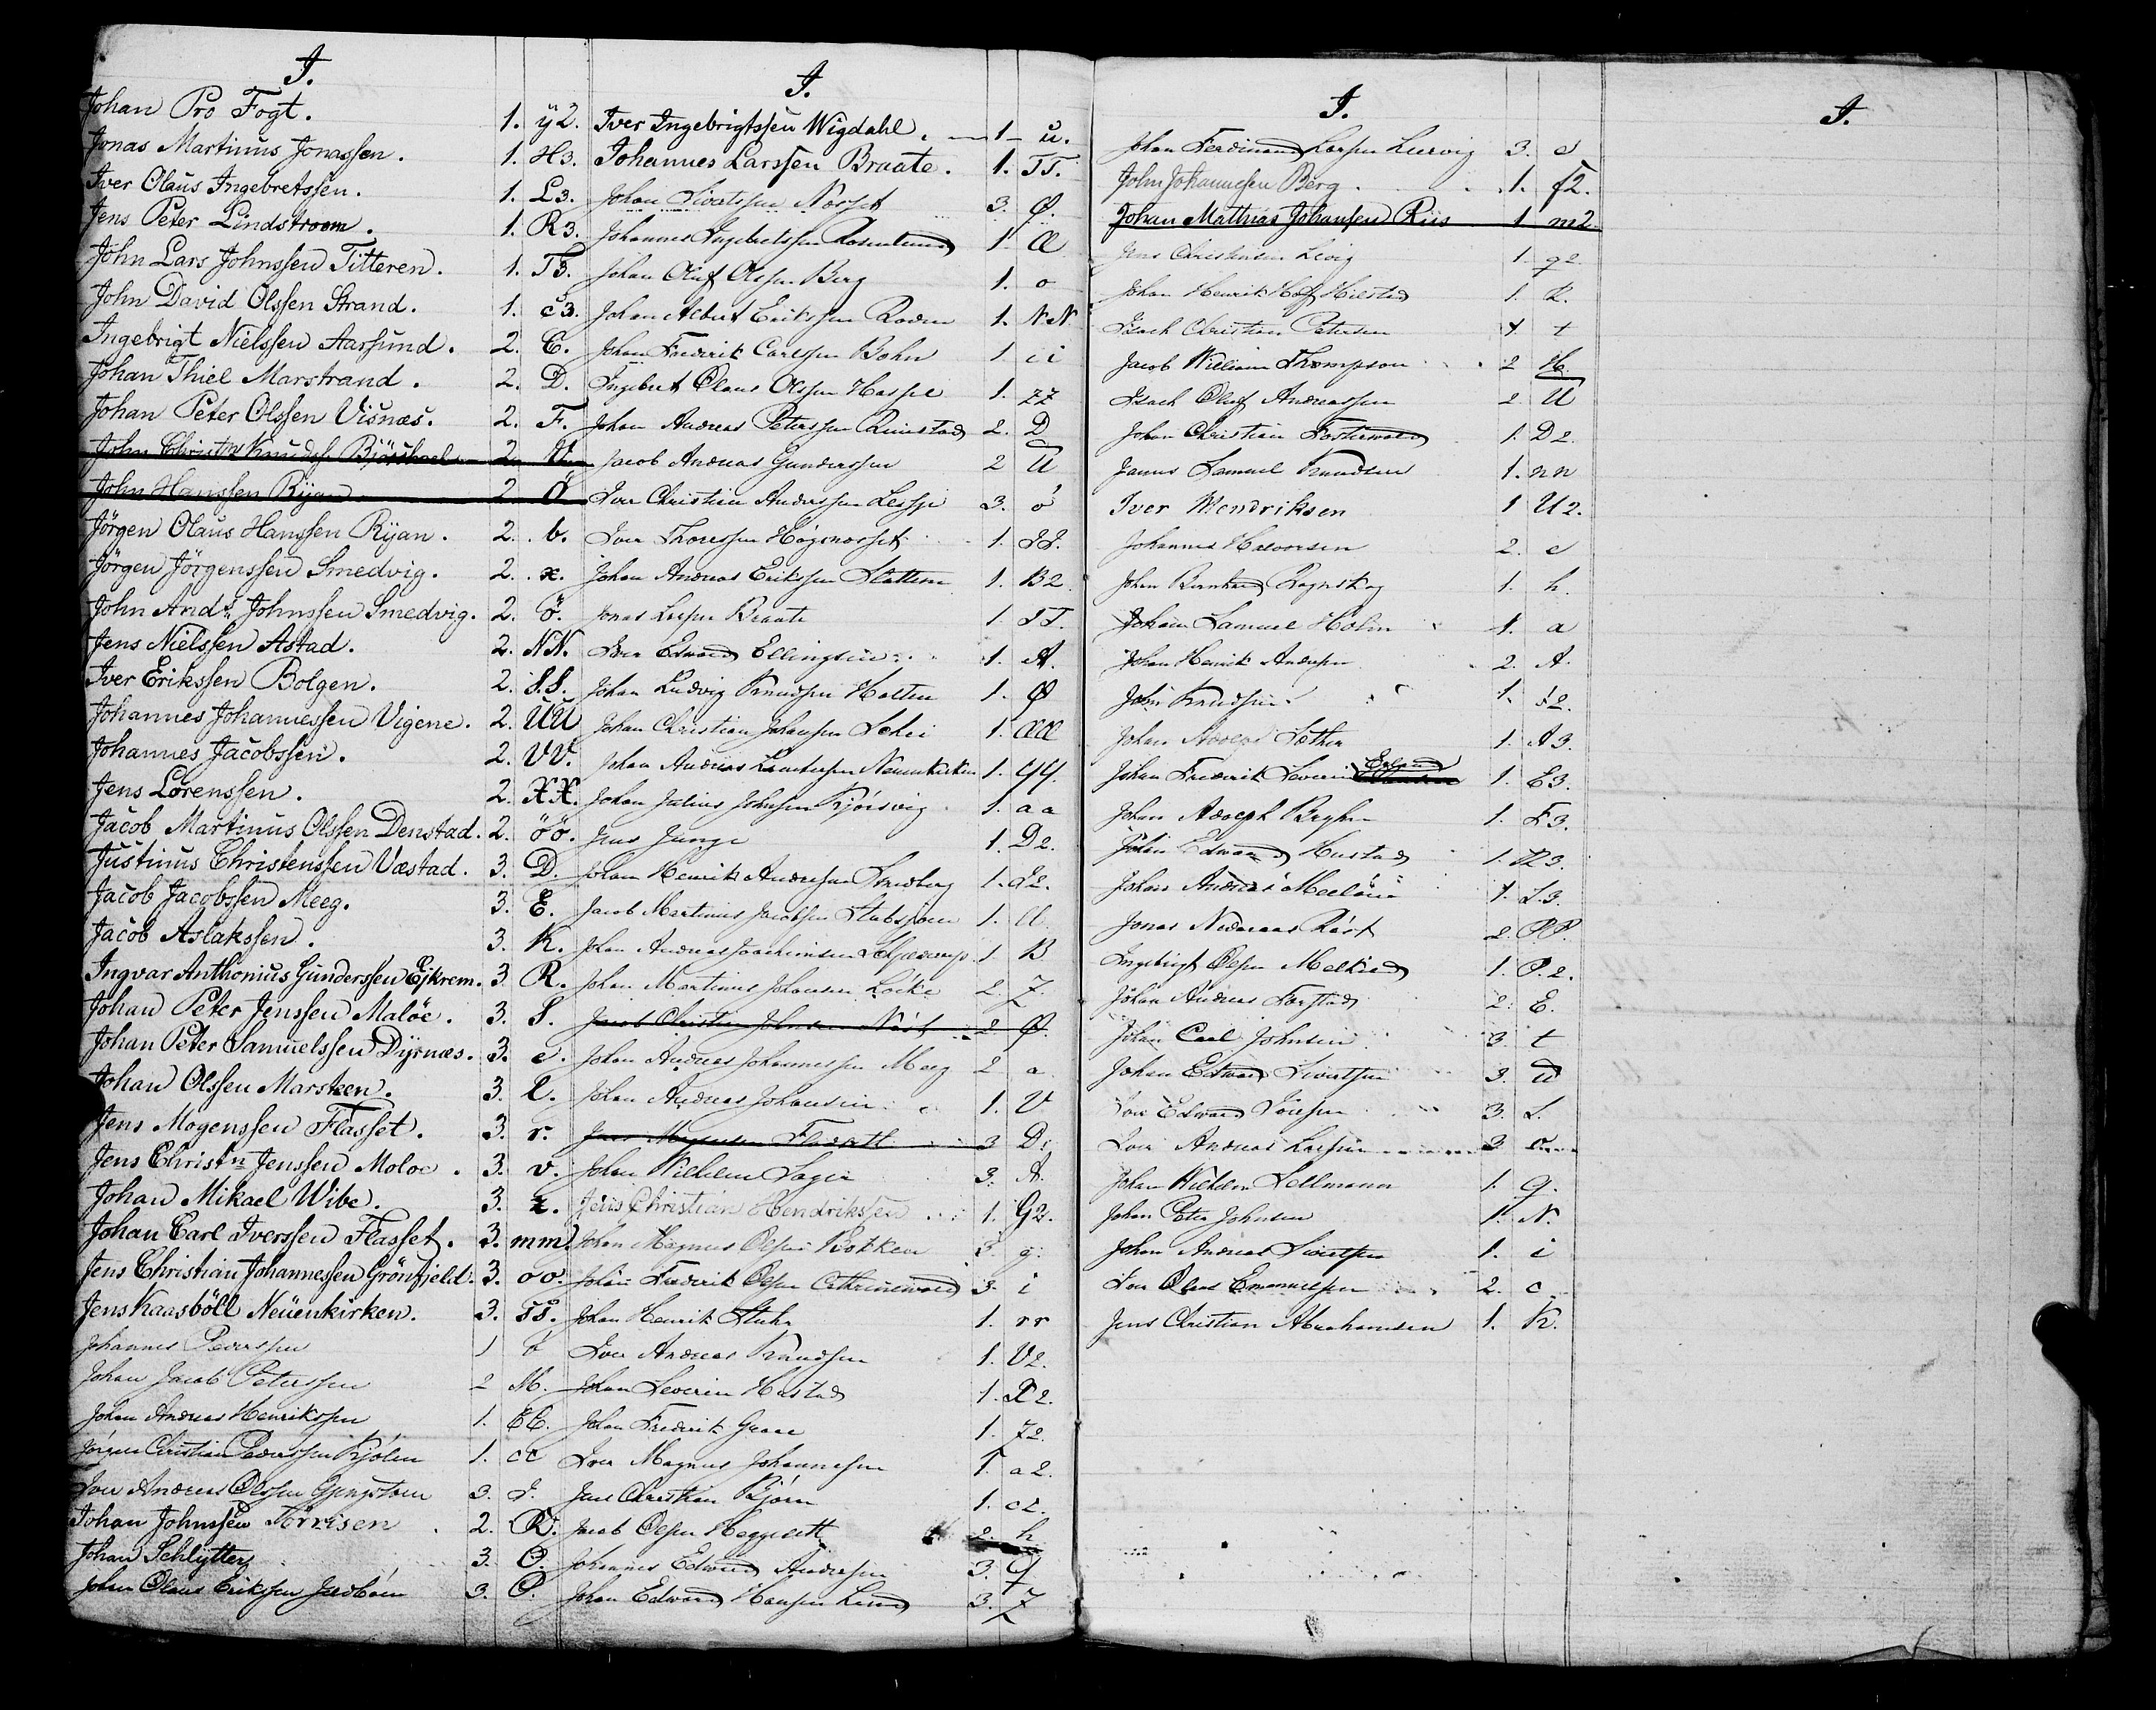 J.
Johan Pro Fogt. 1. ÿ2.
Jonas Martinus Jonassen. 1. H3.
Iver Olaus Ingebretssen. 1. L3.
Jens Peter Lindstroem. 1. R3.
John Lars Johnssen Titteren. 1. T3.
John David Olssen Strand. 1. c3.
Ingebrigt Nielssen Aarsund. 2. C.
Johan Thiel Marstrand. 2. D.
Johan Peter Olssen Visnæs. 2. F.
John Christn Knudss. 2. V.
John Hanssen Ryan 2. Ö
Jörgen Olaus Hanssen Ryan. 2. b.
Jörgen Jörgenssen Smedvig. 2. x.
John Ands Johnssen Smedvig. 2. ö.
Jens Nielssen Astad. 2. NN.
Iver Erikssen Bolgen. 2. S.S.
Johannes Johannessen Vigene. 2. UU
Johannes Jacobssen. 2. VV.
Jens Lorenssen. 2. XX.
Jacob Martinus Olssen Denstad. 2. öö.
Justinus Christenssen Væstad. 3. D.
Jacob Jacobssen Meeg. 3. E.
Jacob Aslakssen. 3. K.
Ingvar Anthonius Gunderssen Ejkrem. 3. R.
Johan Peter Jenssen Maløe. 3. S.
Johan Peter Samuelssen Dyrnæs. 3. e.
Johan Olssen Marsteen. 3. l.
Jens Mogenssen Flasset. 3. r.
Jens Christn Jenssen Moloe. 3. v.
Johan Mikael Wibe. 3. z.
Johan Carl Iverssen Flasset. 3. mm.
Jens Christian Johannessen Grönfjeld. 3. oo.
Jens Kaasböll Neuenkirken. 3. ss.
Johannes Pederssen 1
Johan Jacob Peterssen 2 M.
Johan Andreas Henrikssen 1. EE.
Jörgen Christian Pederssen Kjölen 1. cc
Iver Andreas Olssen 3. I.
Johan Johnssen Torrisen 2. R.
Johan Schlytter 3. O.
Johan Olaus Erikssen 3. O.
J.
Iver Ingebrigtssen Wigdahl. 1 u.
Johannes Larssen Braate. 1. TT.
Johan Sivertssen Nosset 3. Ø.
Johannes Ingebretssen Rosenlund 1 Æ
Johan Oluf Olssen Berg 1. o
Johan Albert Erikssen Roden 1. NN.
Johan Frederik Carlssen Bohn 1 ii
Ingebret Olaus Olssen 1. zz
Johan Andreas Peterssen Rimstad 2. D
Jacob Andreas Gunderssen 2 U
Iver Christian Anderssen 3. ó
Iver Thoressen Högsnosset 1. II.
Johan Andreas Erikssen 1 B2
Jonas Larssen Braate 1. TT.
Iver Edward Ellingsen 1. A.
Johan Ludvig Knudssen Holten 1. Ø
Johan Christian Johanssen 1. ÆÆ
Johan Andreas Neuenkirken 1. YY.
Johan Julius Johnssen Kjörsvig 1. aa
Jens Junge 1. D2.
Johan Henrik Andressen 1. I2.
Jacob Martinus Jacobsen 1.
Johan Andreas Joachimsen 1 B
Johan Martinus Johansen Löcke 2. Z.
Jacob Christian Johnsen 2. Ø.
Johan Andreas Johannessen Meeg 2 a
Johan Andreas Johansen 1. V
Jens Mogensen Flasseth 3 D.
Johan Wilhelm Sager 3. A.
Jens Christian Hendrikssen 1. G2.
Johan Magnus Olsen Bokken 3. g.
Johan Frederik Olssen Cathrinevold 3. i
Johan Henrik Stuhr 1. rr
Iver Andreas Knudsen 1. V2.
Johan Severin Hustad 1. X2.
Johan Frederik 1. Z2.
Iver Magnus Johannesen 1. a2.
Jens Christian Björn 1. c2.
Jacob Olsen 2. h
Johannes Edvard Andersen 3. Y
Johan Edward Hansen Lund 3. Z
J.
Johan Ferdinand Larsen 3. e
John Johannesen Berg. 1. f2.
Johan Mathias Johansen Riis 1. m2.
Jens Christensen 1. q2.
Johan Henrik 1. k.
Isach Christian Petersen 1 t
Jacob William Thompson 2 H.
Isach Oluf Andreassen 2. U
Johan Christian 1. D2.
Janus Samuel Knudsen 1. nn
Iver Hendriksen 1 U2.
Johannes Halvorsen 2. e
Johan Bernhard 1. h.
Johan Samuel Holm 1. a
Johan Henrik Andersen 2. A.
John Knudssen 1.
Johan Adolph Sæther 1. A3.
Johan Frederik Severin 1. E3.
Johan Adolph 1. F3.
Johan Edward Hustad 1.
Johan Andreas 1. L3.
Jonas 2. PP.
Ingebrigt Olsen 1. P.2.
Johan Andreas 2. E.
Johan Carl Johnsen 3 t
Johan Edward Sivertsen 3. u
Iver Edward 3. L.
Iver Andreas Larsen 3
Johan Wilhelm Sellmann 1. q.
Johan Peter Johnsen 1. N.
Johan Andreas Sivertsen 1. i
Iver Olaus Emanuelsen 2. c.
Jens Christian Abrahamsen 1. K.
J.